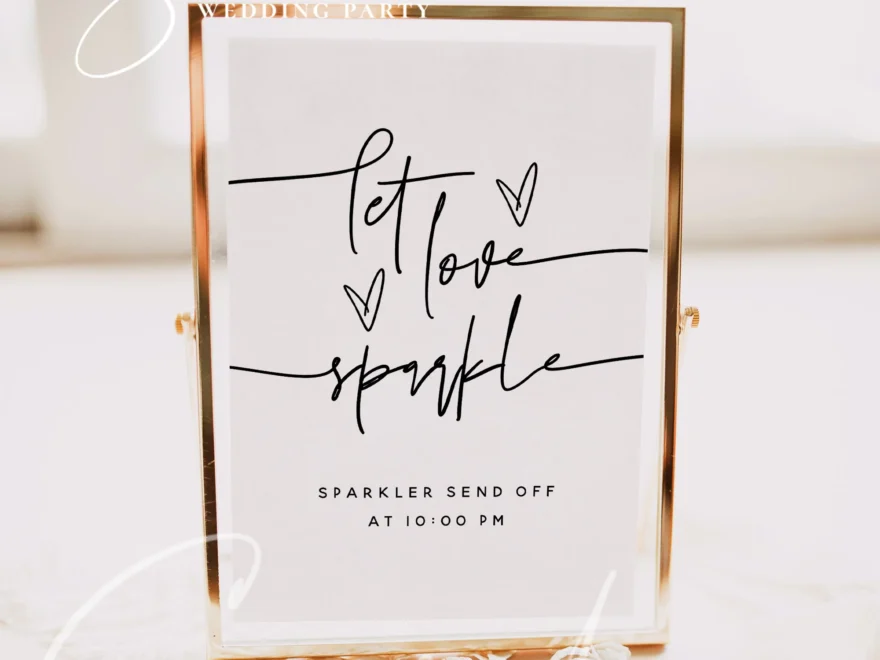 WEDDING PARTY
let
love
sparkle
SPARKLER SEND OFF
AT 10:00 PM